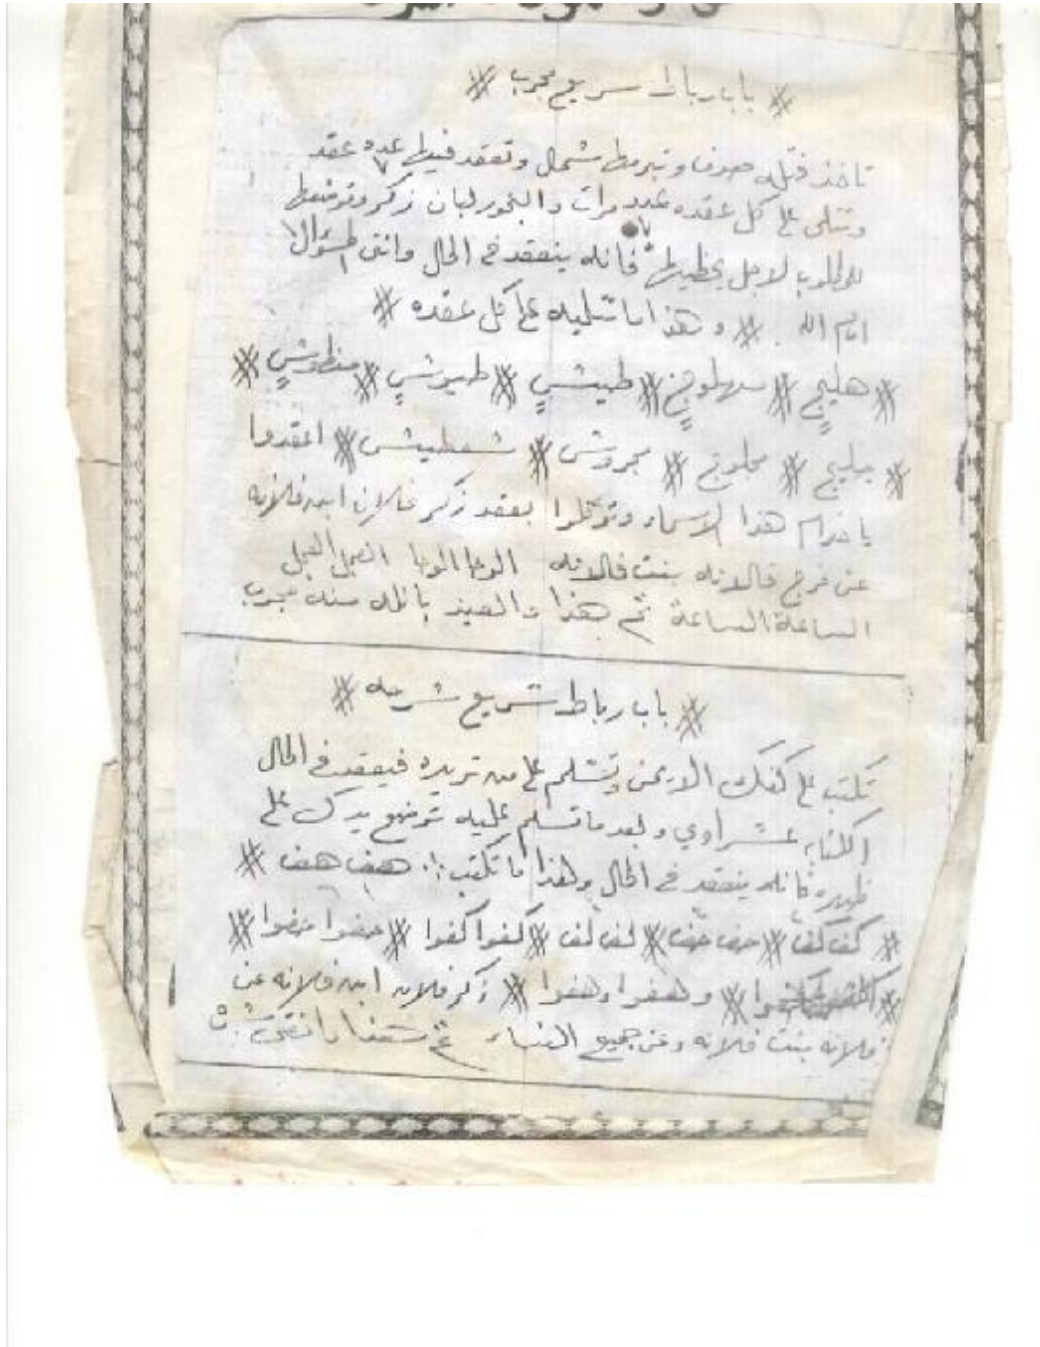 # باب رباط سريع مجرب #
تاخذ فتله صوف وتبرمها شمال وتعقد فيها عدد ٧ عقد
وتتلى على كل عقده عدد مرات والبخور لبان زكر وتوضعها
للمطلوب لاجل يخطيها فانه ينعقد في الحال وانتى المسؤال
امام الله . # وهذا ما تتليه على كل عقده #
# هليج # سهلوج # طيش # طيوش # #
# بليج # مجلوج # بجروش # شطيش # اعقدوا
يا خدام هذا الاسماء وتوكلوا بعقد زكر فلان ابن فلانه
عن فرج فالانه بنت فالانه الوحا الوحا العجل العجل
الساعة الساعة تم هذا بالله منه مجرب
# باب رباط سريع شرحه #
تكتب على كفك الايمن وتسلم على من تريده فيعقد في الحال
الكتابه وبعد ما تسلم عليه توضع يدك على
ظهره فانه ينعقد في الحال وهذا ما تكتب :. هف هف #
# كف كف # حف حف # لف لف # كفوا كفوا # حفوا حفوا #
# # وهفوا وهفوا # زكر فلان ابن فلانه عن
فلانه بنت فلانه وعن جميع النساء تم